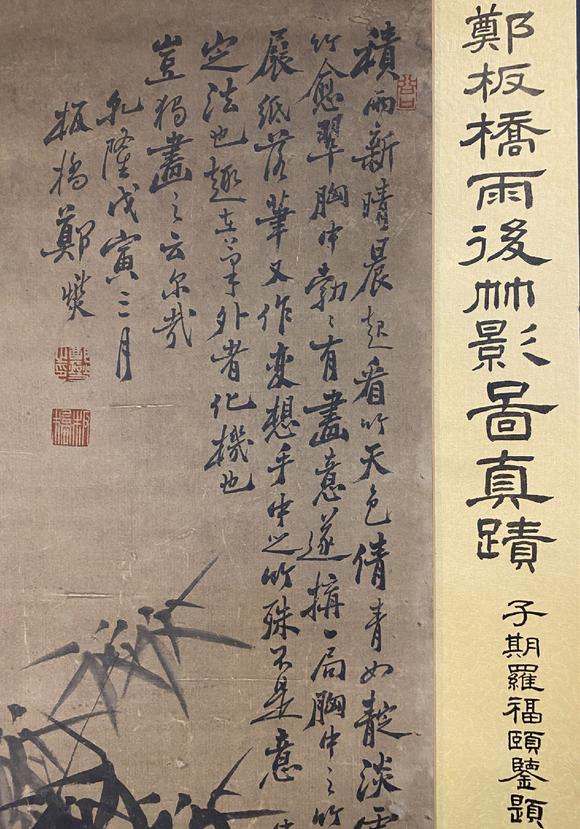 鄭板橋雨後竹影啚真蹟
子期羅福頤鑒題
積雨新晴晨起看竹天色倩青如靛淡
竹愈翠胸中勃〻有畫意遂搆一局胸中之竹
展紙落筆又作变想手中之竹殊不是意
定法也趣在筆外者化機也
豈独畫之云尔哉
乾隆戊寅三月
板橋鄭燮
板橋